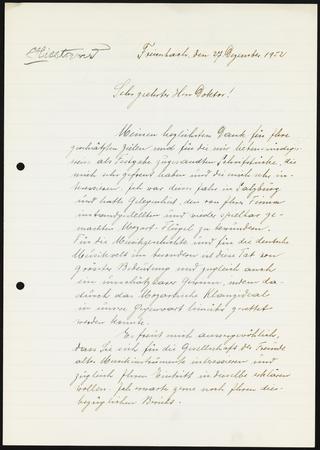 Feuerbach, den 27. Dezember 1952
Sehr geehrter Herr Doktor!
Meinen herzlichsten Dank für Ihre
geschätzten Zeilen und für die mir
als Festgabe zugesandten die
mich sehr gefreut haben und die mich sehr in-
teressieren. Ich war dieses Jahr in Salzburg
und hatte Gelegenheit, den von Ihrer Firma
instandgestellten und wieder spielbar ge-
machten Mozart-Flügel zu bewundern.
Für die Musikgeschichte und für die deutsche
Musikwelt im besonderen ist diese Tat von
grösster Bedeutung und zugleich auch
ein unschätzbarer Gewinn, indem da-
durch das Mozartsche Klangideal
in unsere Gegenwart gerettet
werden konnte.
Es freut mich aussergewöhlich,
dass Sie sich für die Gesellschaft der Freunde
alter Musikinstrumente interessieren und
zugleich Ihren Eintritt in dieselbe erklären
wollen. Ich erwarte gerne noch Ihren dies-
bezüglichen Bericht.